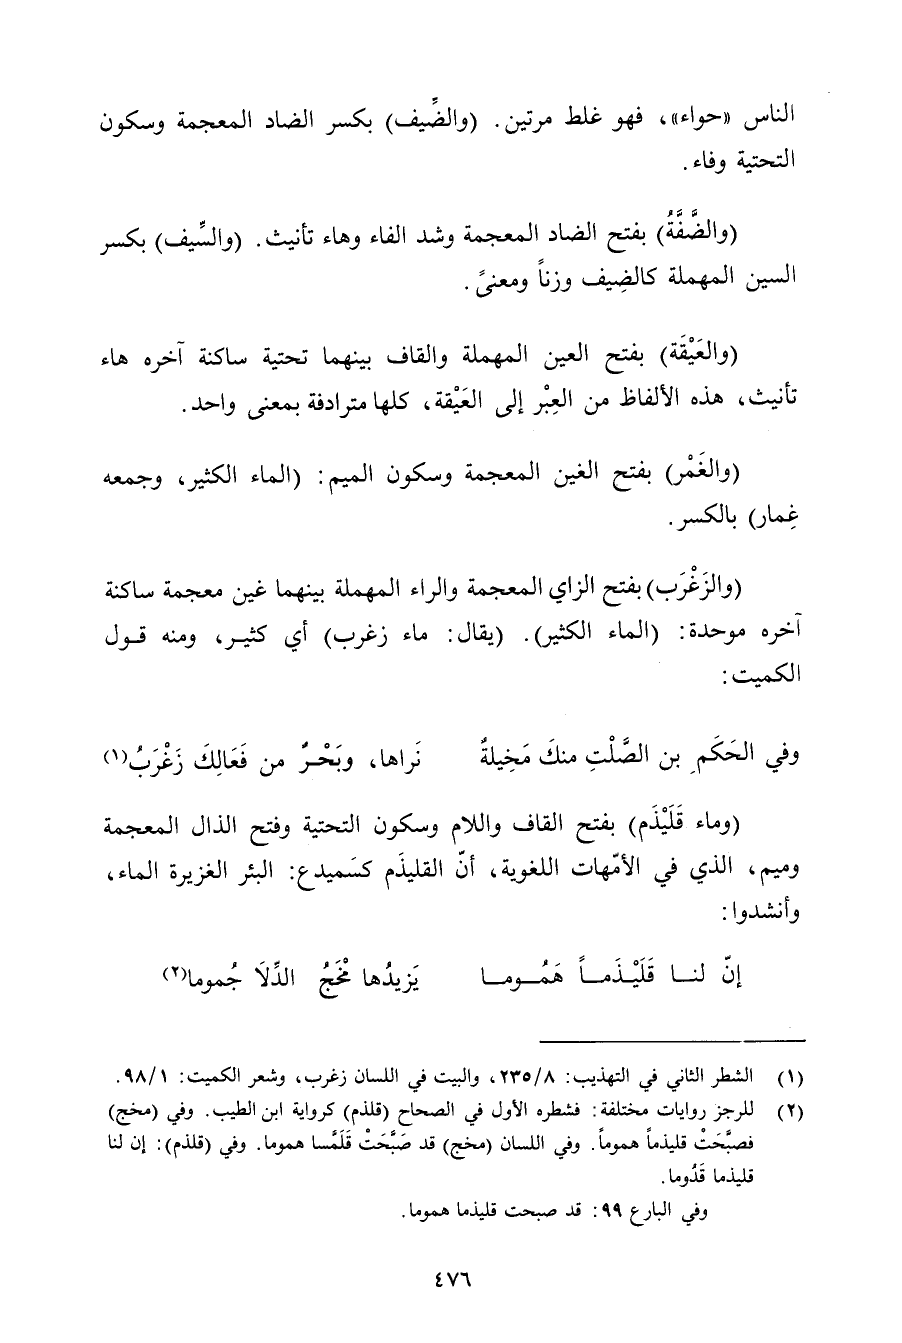 الناس «حواء»، فهو غلط مرتين. (والضِّيف) بكسر الضاد المعجمة وسكون
التحتية وفاء.
(والضَّفَّةُ) بفتح الضاد المعجمة وشد الفاء وهاء تأنيث. (والسِّيف) بكسر
السين المهملة كالضِيف وزناً ومعنىً.
(والعَيْقَة) بفتح العين المهملة والقاف بينهما تحتية ساكنة آخره هاء
تأنيث، هذه الألفاظ من العِبْر إلى العَيْقة، كلها مترادفة بمعنى واحد.
(والغَمْر) بفتح الغين المعجمة وسكون الميم: (الماء الكثير، وجمعه
غِمار) بالكسر.
(والزَغْرَب) بفتح الزاي المعجمة والراء المهملة بينهما غين معجمة ساكنة
آخره موحدة: (الماء الكثير). (يقال: ماء زغرب) أي كثير، ومنه قول
الكميت:
وفي الحَكَمِ بن الصَّلْتِ منكَ مَخِيلةٌ نَراها، وبَحْرٌ من فَعَالِكَ زَغْرَبُ(١)
(وماء قَلَيْذَم) بفتح القاف واللام وسكون التحتية وفتح الذال المعجمة
وميم، الذي في الأمّهات اللغوية، أنّ القليذَم كسَميدع: البئر الغزيرة الماء،
وأنشدوا:
إنّ لنا قَلَيْذَماً هَمُوما يَزيدُها مَخْجُ الدِّلَا جُموما(٢)
(١) الشطر الثاني في التهذيب: ٢٣٥/٨، والبيت في اللسان زغرب، وشعر الكميت: ٩٨/١.
(٢) للرجز روايات مختلفة: فشطره الأول في الصحاح (قلذم) كرواية ابن الطيب. وفي (مخج)
فصبَّحَتْ قليذماً هموماً. وفي اللسان (مخج) قد صَبَّحَتْ قَلَمَّسا هموما. وفي (قلذم): إن لنا
قليذما قَدُوما.
وفي البارع ٩٩: قد صبحت قليذما هموما.
٤٧٦